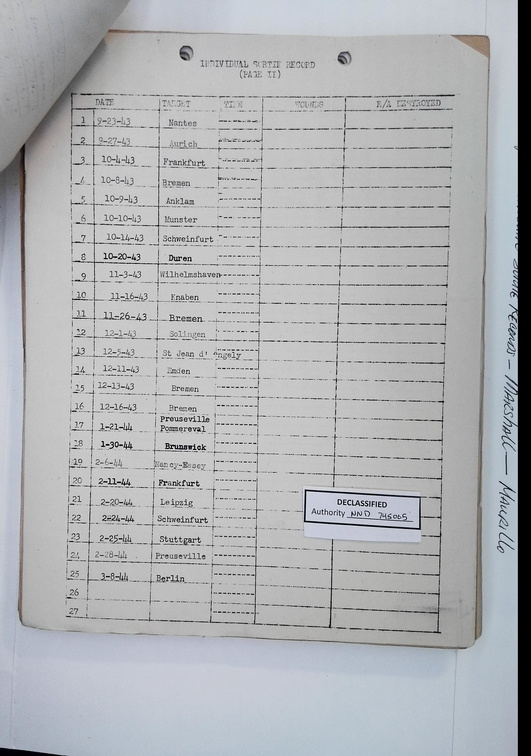 INDIVIDUAL SORTIE RECORD
(PAGE II)
DATE TARGET TIME WOUNDS E/A DESTROYED
1 9-23-43 Nantes
2 9-27-43 Aurich
3 10-4-43 Frankfurt
4 10-8-43 Bremen
5 10-9-43 Anklam
6 10-10-43 Munster
7 10-14-43 Schweinfurt
8 10-20-43 Duren
9 11-3-43 Wilhelmshaven
10 11-16-43 Knaben
11 11-26-43 Bremen
12 12-1-43 Solingen
13 12-5-43 St Jean d' Angely
14 12-11-43 Emden
15 12-13-43 Bremen
16 12-16-43 Bremen
Preuseville
17 1-21-44 Pommereval
18 1-30-44 Brunswick
19 2-6-44 Nancy-Essey
20 2-11-44 Frankfurt
21 2-20-44 Leipzig
22 2-24-44 Schweinfurt
23 2-25-44 Stuttgart
24 2-28-44 Preuseville
25 3-8-44 Berlin
26
27
DECLASSIFIED
Authority NND 745005
Records - Marshall - Mauzillo